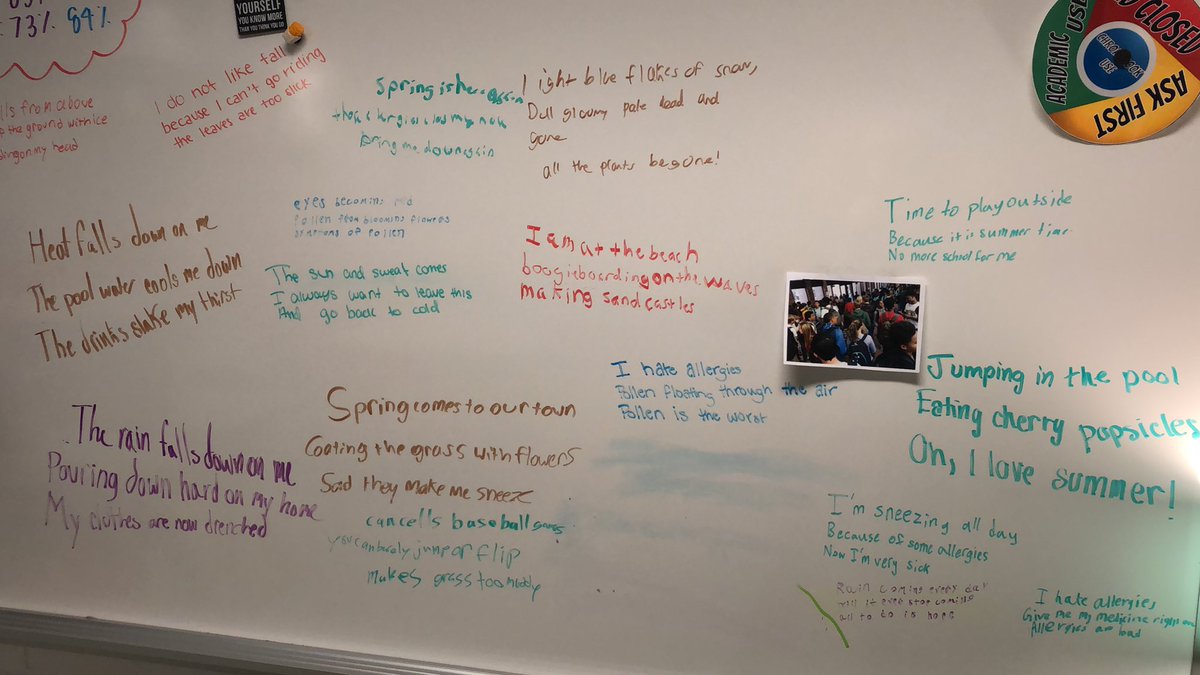 73% 84%
YOURSELF
YOU KNOW MORE
THAN YOU THINK YOU DO
CLOSED
ACADEMIC USE
ASK FIRST
USE
from above
the ground with ice
on my head
I do not like fall
because I can't go riding
the leaves are too slick
Spring is here again
bring me down again
light blue flakes of snow,
Dull gloomy pale dead and
gone
all the plants be gone!
Heat falls down on me
The pool water cools me down
The drinks slake my thirst
eyes becoming red
Pollen from blooming flowers
symptoms of pollen
The sun and sweat comes
I always want to leave this
And go back to cold
I am at the beach
boogieboarding on the waves
making sand castles
Time to play outside
Because it is summer time
No more school for me
Jumping in the pool
Eating cherry popsicles
Oh, I love summer!
I hate allergies
Pollen floating through the air
Pollen is the worst
The rain falls down on me
Pouring down hard on my home
My clothes are now drenched
Spring comes to our town
Coating the grass with flowers
Sad they make me sneeze
cancells baseball games
you can barely jump or flip
makes grass too muddy
I'm sneezing all day
Because of some allergies
Now I'm very sick
Rain coming every day
will it ever stop coming
all to do is hope
I hate allergies
Give me my medicine right
Allergies are bad